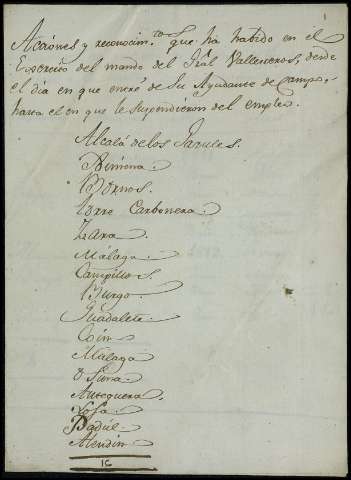 1
Acciónes y reconocim.tos que ha habido en el
Exercito del mando del Gral Vallesteros, desde
el dia en que entré de Su Ayudante de Campo,
hasta el en que le suspendieron del empleo.
Alcalá de los Gazules.
Ximena.
Bornos.
Torre Carbonera.
Zara.
Málaga.
Campillos.
Burgo.
Guadalete.
Coin.
Málaga
Osuna
Antequera.
Loja.
Padúl.
Alendin
16